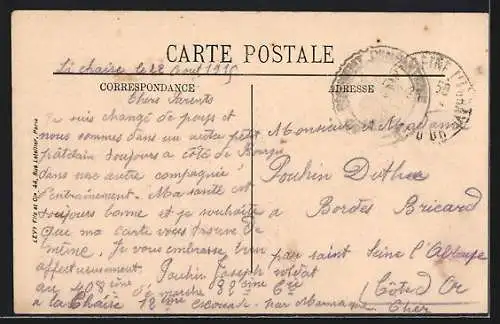 CARTE POSTALE
La chaise le 22 Aout 1915
CORRESPONDANCE
ADRESSE
Chers Parents
Je suis changé de pays et
nous sommes dans un autre petit
patelain toujours a côté de Bourges
dans une autre compagnie
d'entrainement. Ma santé est
toujours bonne et je souhaite
que ma carte vous trouve de
même. Je vous embrasse bien
affectueusement. Poulin Joseph soldat
au 408 ème de marche 32 ème Cie
a la Chaise 12 ème escouade par
Cher
Monsieur et Madame
Poulin
a Bordes Bricard
par saint Seine l'Abbaye
Côte d'Or
LEVY Fils et Cie, 44, Rue Letellier, Paris